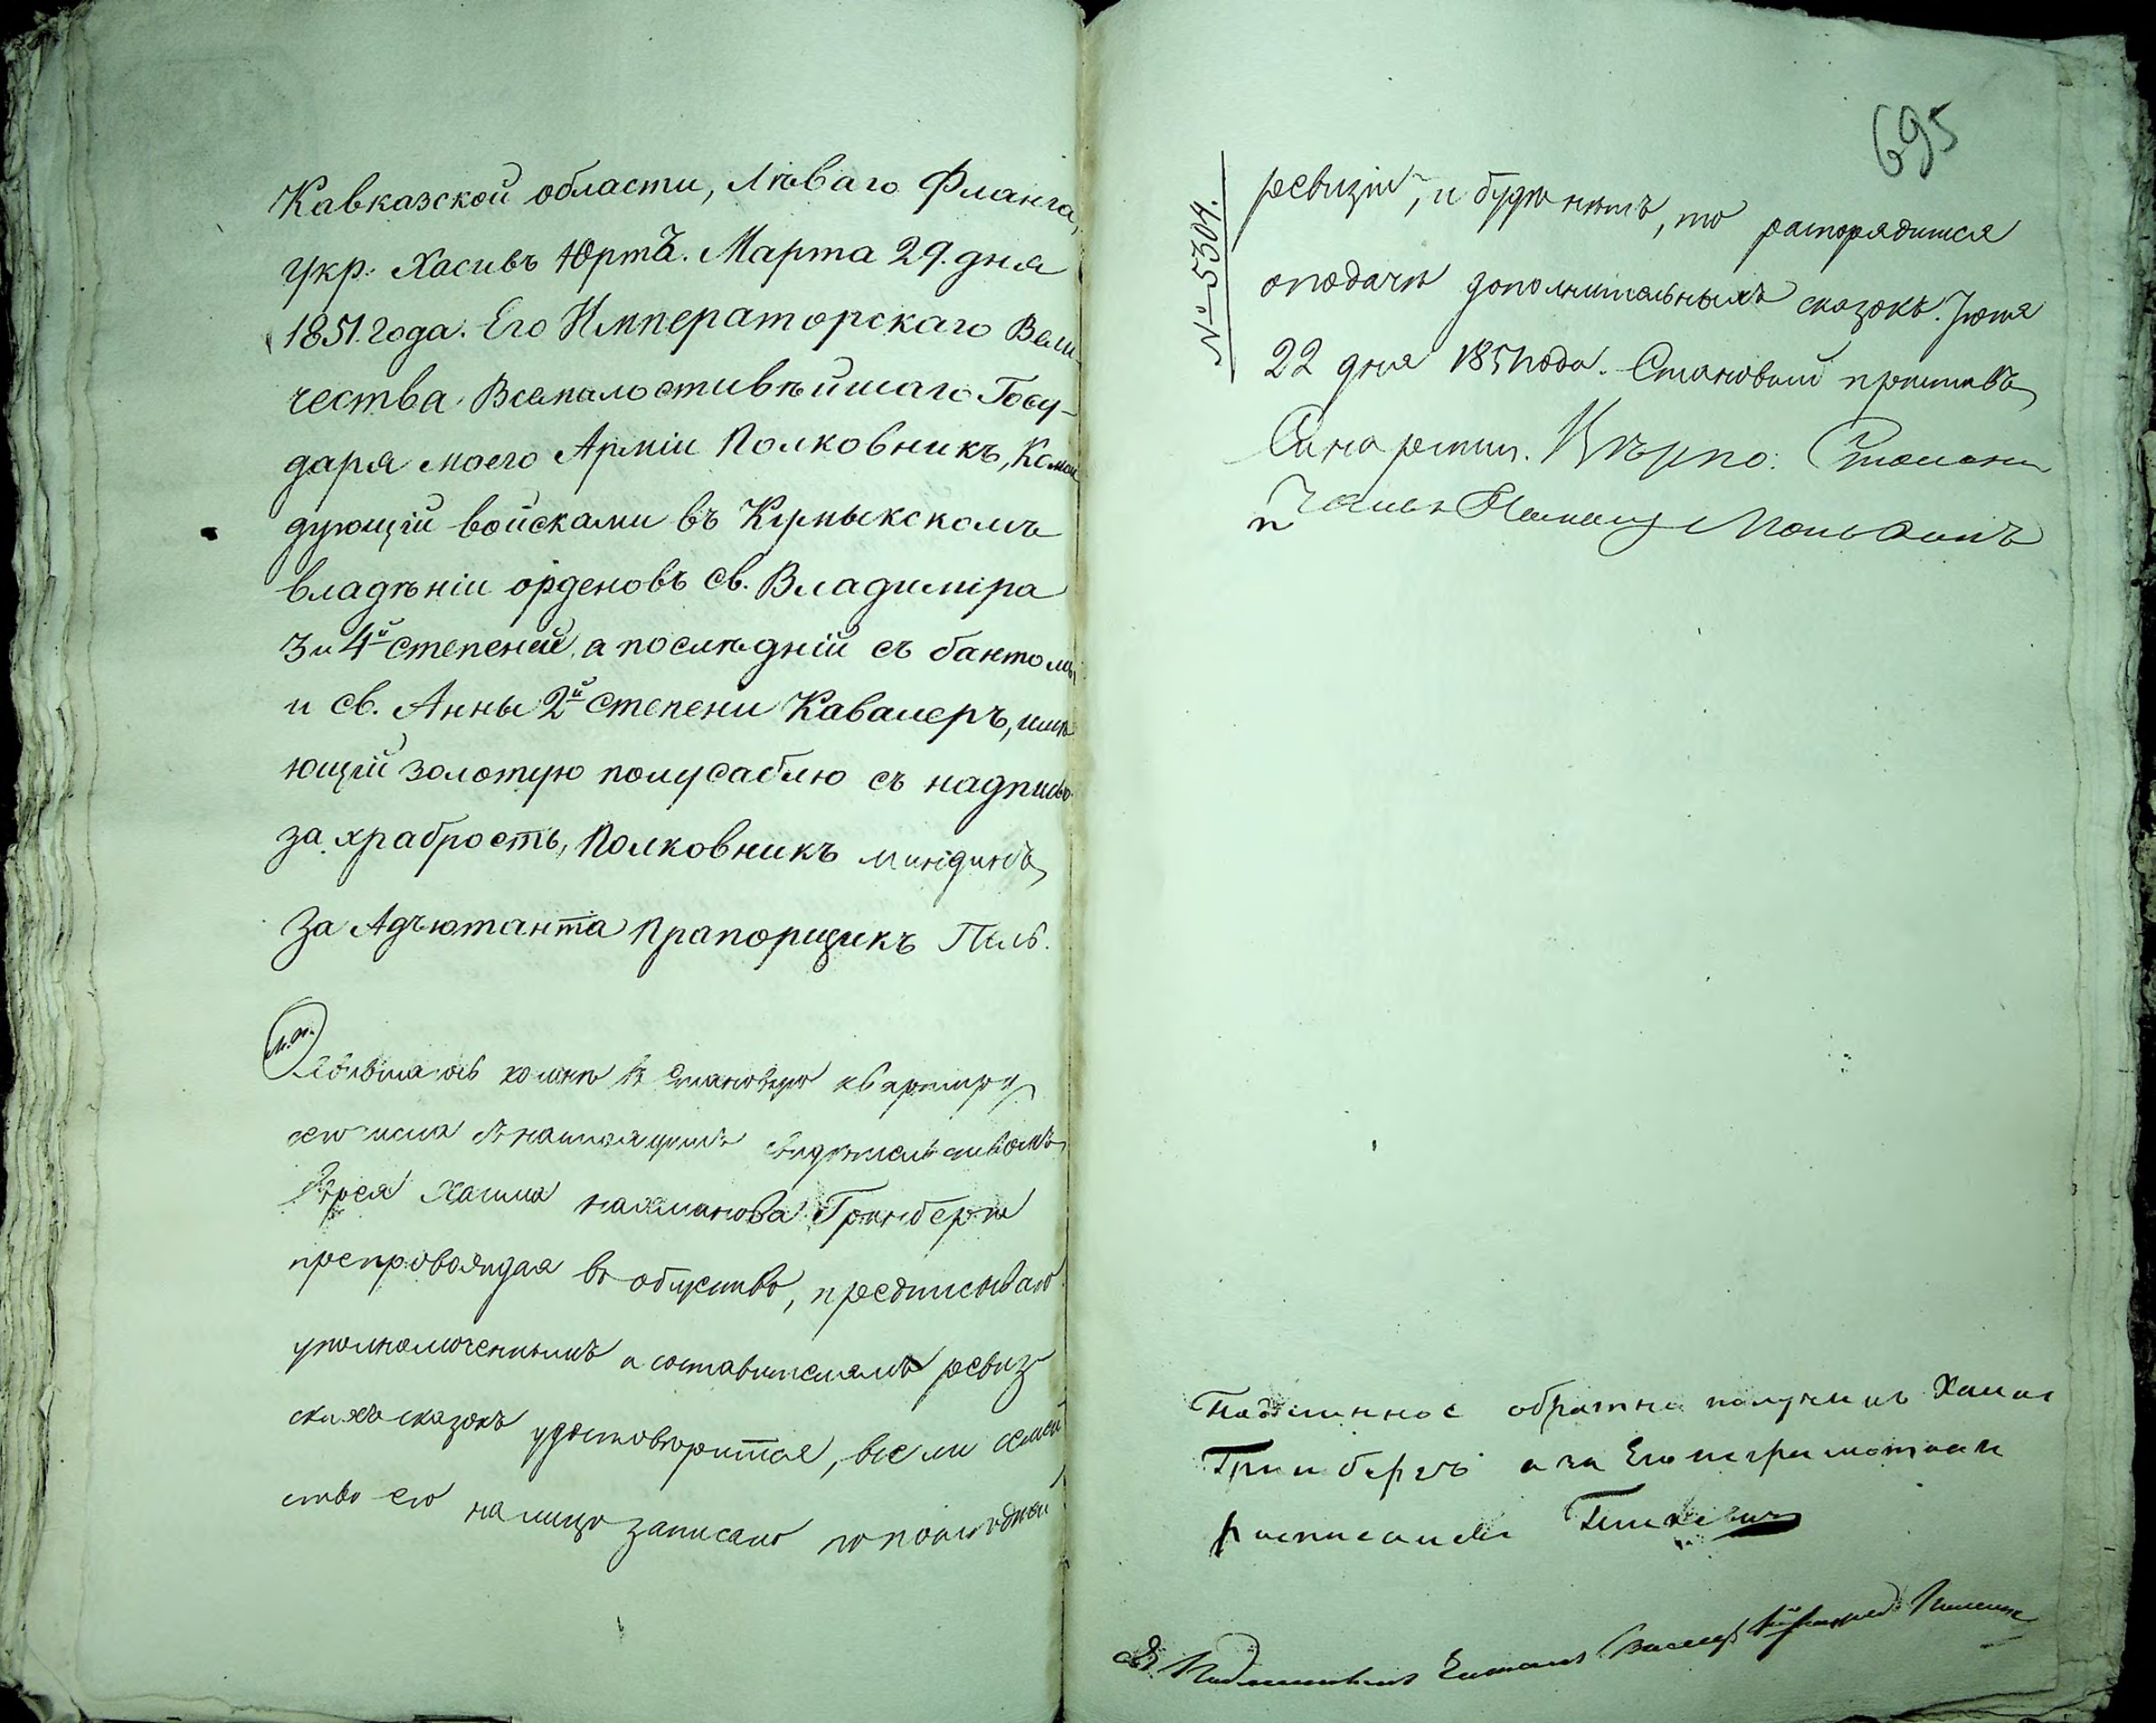 Кавказской области, Лѣваго Фланга,
укр: Хасивъ Юртъ. Марта 29. дня
1851. года. Его Императорскаго Вели-
чества Всемилостивѣйшаго Госу-
даря моего Арміи Полковникъ, Коман
дующій войсками въ Кумыкскомъ
владѣніи орденовъ св. Владиміра
3 и 4й степеней, а послѣдній съ бантомъ
и св. Анны 2й степени Кавалеръ, имѣ
ющій золотую полусаблю съ надписью
за храбрость, Полковникъ
За Адъютанта Прапорщикъ
М.П.
въ становую квартиру
свидѣтельствомъ
Еврея Хаима Гринберга
препровождая въ общество, предписываю
уполномоченнымъ и составителямъ ревиз
скихъ сказокъ удостовѣрится, все ли семей
ство его на лицо записано по послѣдней
695
№ 5304.
ревизіи, и буде нѣтъ, то распорядится
о подачѣ дополнительныхъ сказокъ. Іюня
22 дня 1851 года. Становый приставъ
Вѣрно:
Подлинное обратно получилъ Хаимъ
Гринбергъ а за Его неграмотнаго
росписался